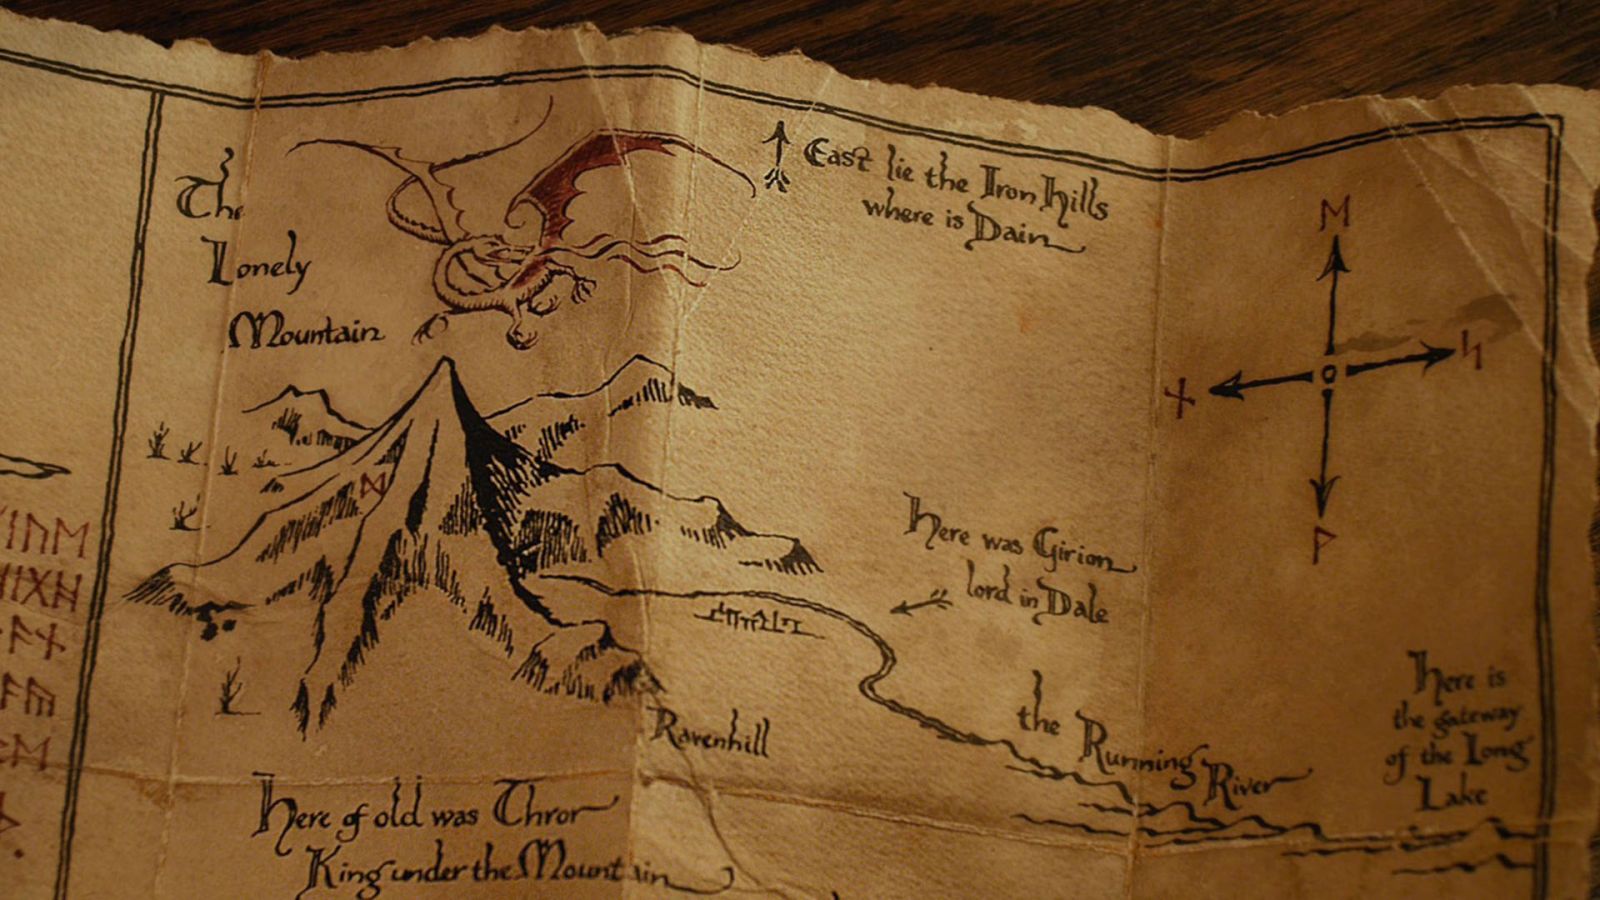 The
Lonely
Mountain
East lie the Iron Hills
where is Dain
ᛖ
ᚾ
ᛋ
ᚹ
ᛞ
Here was Girion
lord in Dale
the Running River
Here is
the gateway
of the Long
Lake
Ravenhill
Here of old was Thror
King under the Mountain